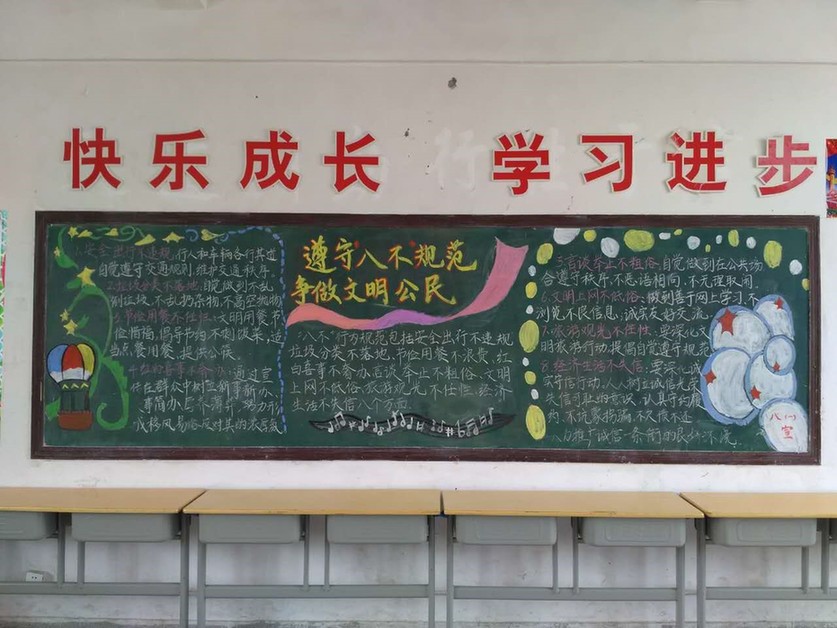 快乐成长 学习进步
1.安全出行不违规,行人和车辆各行其道
自觉遵守交通规则,维护交通秩序。
2.垃圾分类不落地,自觉做到不乱
倒垃圾,不乱扔杂物,不高空抛物
3.节俭用餐不浪费,文明用餐节
俭惜福,倡导节约不剩饭菜,适
当点餐用餐,提供公筷
4.红白喜事不奢办,通过宣
在群众中树立新事新办、
事简办
成移风易俗反对
遵守"八不"规范
争做文明公民
"八不"行为规范包括安全出行不违规
垃圾分类不落地,节俭用餐不浪费,红
白喜事不奢办,言谈举止不粗俗,文明
上网不低俗,旅游观光不任性,经济
生活不失信八个方面
5.言谈举止不粗俗,自觉做到在公共场
合遵守秩序,不恶语相向,不无理取闹。
6.文明上网不低俗,做到善于网上学习,不
浏览不良信息,诚实友好交流。
7.旅游观光不任性,要深化文
明旅游行动,提倡自觉遵守规范
8.经济生活不失信,要深化诚
实守信行动,人人树立诚信光荣
失信可耻的意识,认真守约履
约,不坑蒙拐骗,不欠债不还
八(一)
宣